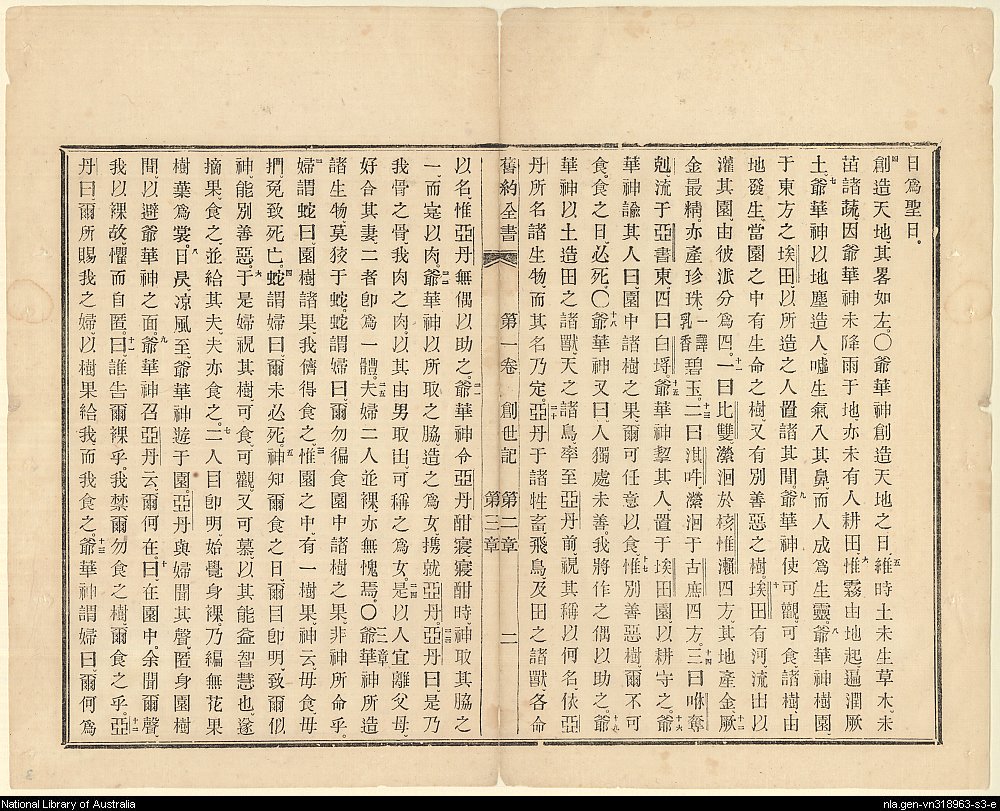 日爲聖日。
四創造天地、其畧如左。〇爺華神創造天地之日、五維時土未生草木、未
茁諸蔬、因爺華神未降雨于地、亦未有人耕田、六惟霧由地起、遍潤厥
土、七爺華神以地塵造人、噓生氣入其鼻、而人成爲生靈、八爺華神樹園
于東方之埃田、以所造之人置諸其間、九爺華神使可觀、可食、諸樹由
地發生、當園之中有生命之樹、又有別善惡之樹、十埃田有河流出以
灌其園、由彼派分爲四、十一一曰比雙、瀠洄於核惟瀨四方、其地產金、十二厥
金最精、亦產珍珠一譯乳香碧玉、十三二曰淇吽、瀠洄于古庶四方、十四三曰咻奪
剋、流于亞書東、四曰白埒、十五爺華神挈其人、置于埃田園以耕守之、十六爺
華神諭其人曰、園中諸樹之果爾可任意以食、十七惟別善惡樹、爾不可
食、食之日、必死、〇十八爺華神又曰、人獨處未善、我將作之偶以助之、十九爺
華神以土造田之諸獸、天之諸鳥、率至亞丹前、視其稱以何名、依亞
丹所名諸生物、而其名乃定、二十亞丹于諸牲畜飛鳥、及田之諸獸、各命
舊約全書 第一卷 創世記 第二章 第三章 二
以名、惟亞丹無偶以助之、二一爺華神令亞丹酣寢、寢酣時、神取其脇之
一、而寔以肉、二二爺華神以所取之脇造之爲女、携就亞丹、二三亞丹曰、是乃
我骨之骨、我肉之肉、以其由男取出、可稱之爲女、二四是以人宜離父母、
好合其妻、二者卽爲一體、二五夫婦二人並裸、亦無愧焉。〇三章爺華神所造
諸生物、莫狡于蛇、蛇謂婦曰、爾勿徧食園中諸樹之果、非神所命乎、
二婦謂蛇曰、園樹諸果、我儕得食之、三惟園之中、有一樹果、神云、毋食毋
捫、免致死亡、四蛇謂婦曰、爾未必死、五神知爾食之日、爾目卽明、致爾似
神、能別善惡、六于是婦視其樹、可食、可觀、又可慕、以其能益智慧也、遂
摘果、食之、並給其夫、夫亦食之、七二人目卽明、始覺身裸、乃編無花果
樹葉爲裳、八日昃凉風至、爺華神遊于園、亞丹與婦聞其聲、匿身園樹
間、以避爺華神之面、九爺華神召亞丹云、爾何在、十曰、在園中、余聞爾聲、
我以裸故、懼而自匿、十一曰、誰告爾裸乎、我禁爾勿食之樹、爾食之乎、十二亞
丹曰、爾所賜我之婦、以樹果給我、而我食之、十三爺華神謂婦曰、爾何爲
National Library of Australia
nla.gen-vn318963-s3-e